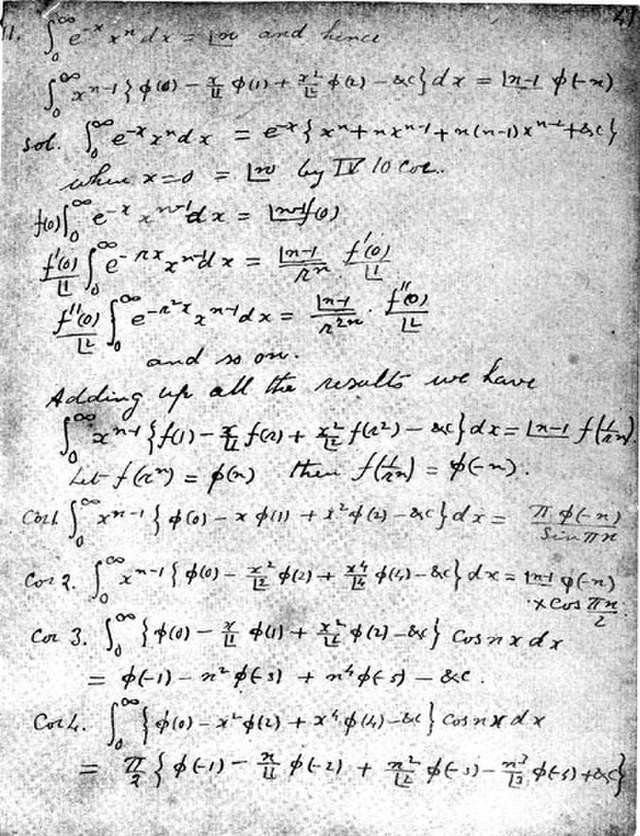 11. ∫₀^∞ e^{-x} x^n dx = |n and hence
∫₀^∞ x^{n-1} { φ(0) - x/|1 φ(1) + x²/|2 φ(2) - &c } dx = |n-1 φ(-n)
Sol. ∫₀^∞ e^{-x} x^n dx = e^{-x} { x^n + n x^{n-1} + n(n-1) x^{n-2} + &c }
when x=0 = |n by IV 10 Cor.
f(0) ∫₀^∞ e^{-x} x^{n-1} dx = |n-1 f(0)
f'(0)/|1 ∫₀^∞ e^{-rx} x^{n-1} dx = |n-1/r^n f'(0)/|1
f''(0)/|2 ∫₀^∞ e^{-r²x} x^{n-1} dx = |n-1/r^{2n} . f''(0)/|2
and so on.
Adding up all the results we have
∫₀^∞ x^{n-1} { f(1) - x/|1 f(r) + x²/|2 f(r²) - &c } dx = |n-1 f(1/r^n)
Let f(r^n) = φ(n) then f(1/r^n) = φ(-n).
Cor 1. ∫₀^∞ x^{n-1} { φ(0) - x φ(1) + x² φ(2) - &c } dx = π φ(-n)/Sin πn
Cor 2. ∫₀^∞ x^{n-1} { φ(0) - x²/|2 φ(2) + x⁴/|4 φ(4) - &c } dx = |n-1 φ(-n)
× Cos πn/2
Cor 3. ∫₀^∞ { φ(0) - x/|1 φ(1) + x²/|2 φ(2) - &c } Cos nx dx
= φ(-1) - n² φ(-3) + n⁴ φ(-5) - &c.
Cor 4. ∫₀^∞ { φ(0) - x² φ(2) + x⁴ φ(4) - &c } Cos nx dx
= π/2 { φ(-1) - n/|1 φ(-2) + n²/|2 φ(-3) - n³/|3 φ(-4) + &c }